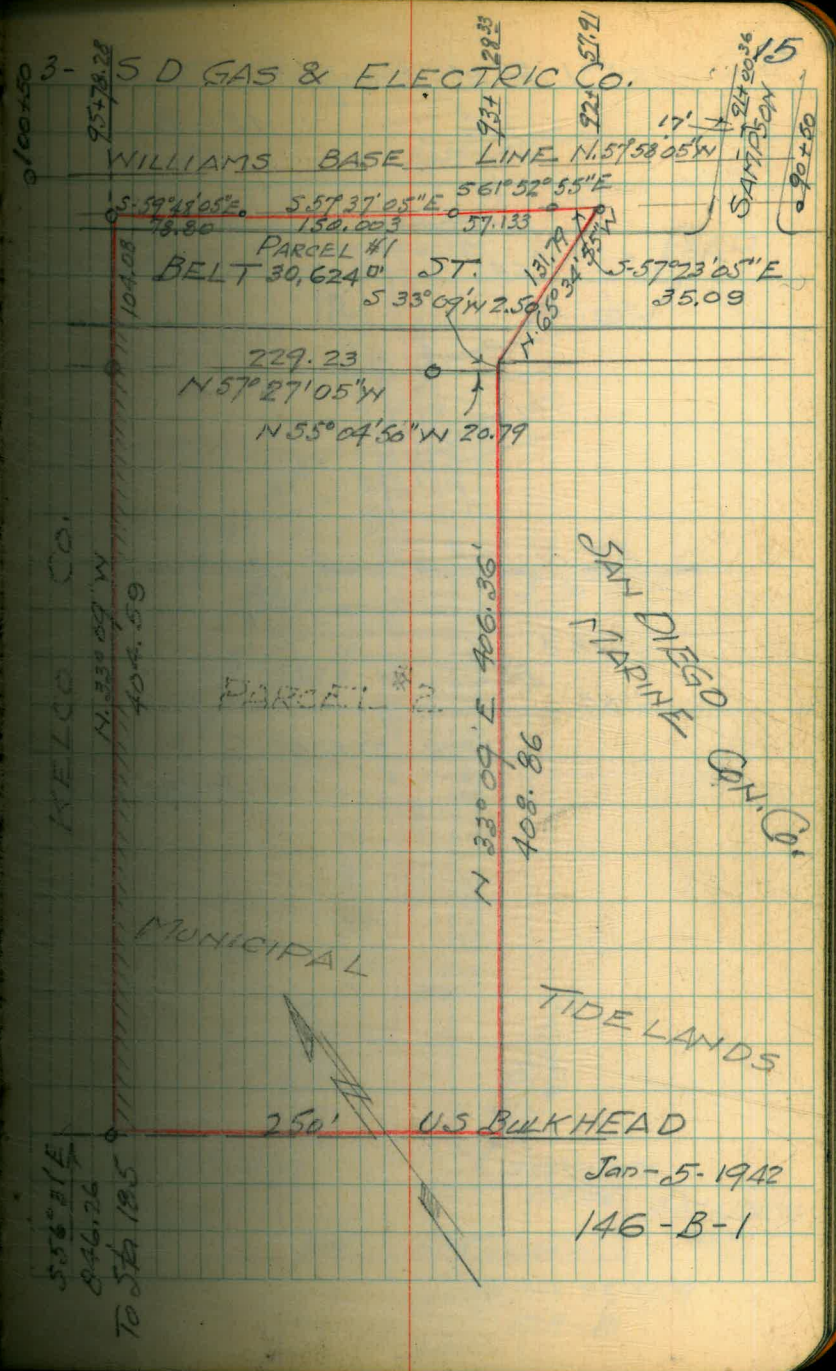 15
3- S D GAS & ELECTRIC Co.
100+50
95+78.28
93+ 28.33
92+ 57.91
91+20.36
SAMPSON
90+50
17'
WILLIAMS BASE LINE N.57°58'05"W
S-59°48'05"E. S.57°37'05"E S61°52'55"E
78.80 150.003 57.133
PARCEL #1
BELT 30,624□' ST.
104.08
131.79
N.65°34'55"W
S-57°23'05"E
35.09
S 33°09'W 2.50
229.23
N57°27'05"W
N55°04'56"W 20.79
KELCO CO.
N.33°09' W
404.59
PARCEL #2
N 33°09' E 406.36'
408.86
SAN DIEGO
MARINE
CON. Co.
MUNICIPAL
TIDELANDS
N
250' U.S BULKHEAD
Jan-5-1942
146-B-1
S56°21'E
846.26
To Sta 185